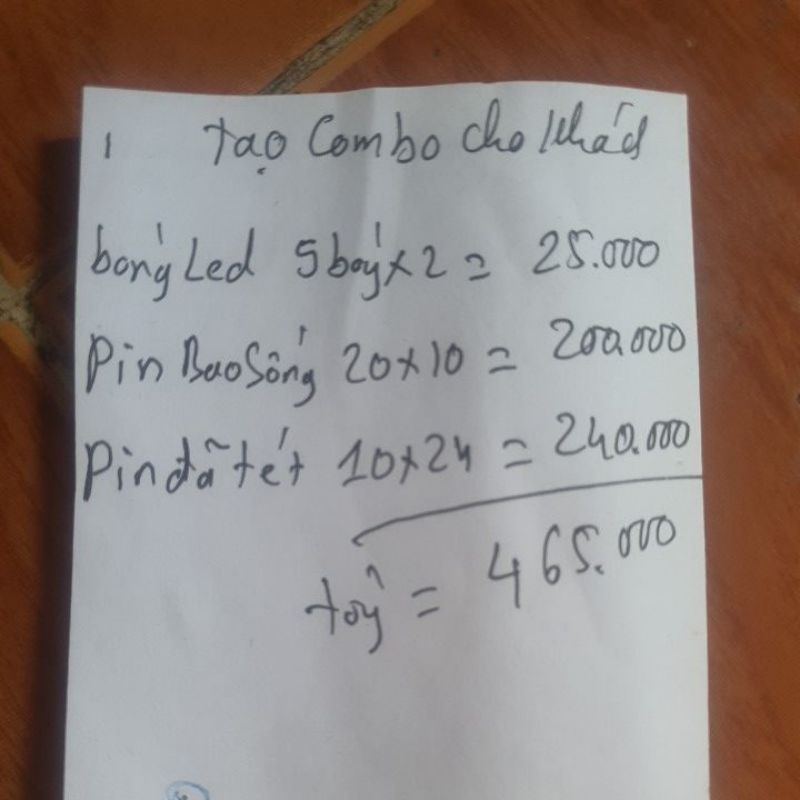 1 Tạo Combo cho khách
bóng Led 5 bóng x 2 = 25.000
Pin Bao Sông 20 x 10 = 200.000
Pin dã tét 10 x 24 = 240.000
tổng = 465.000